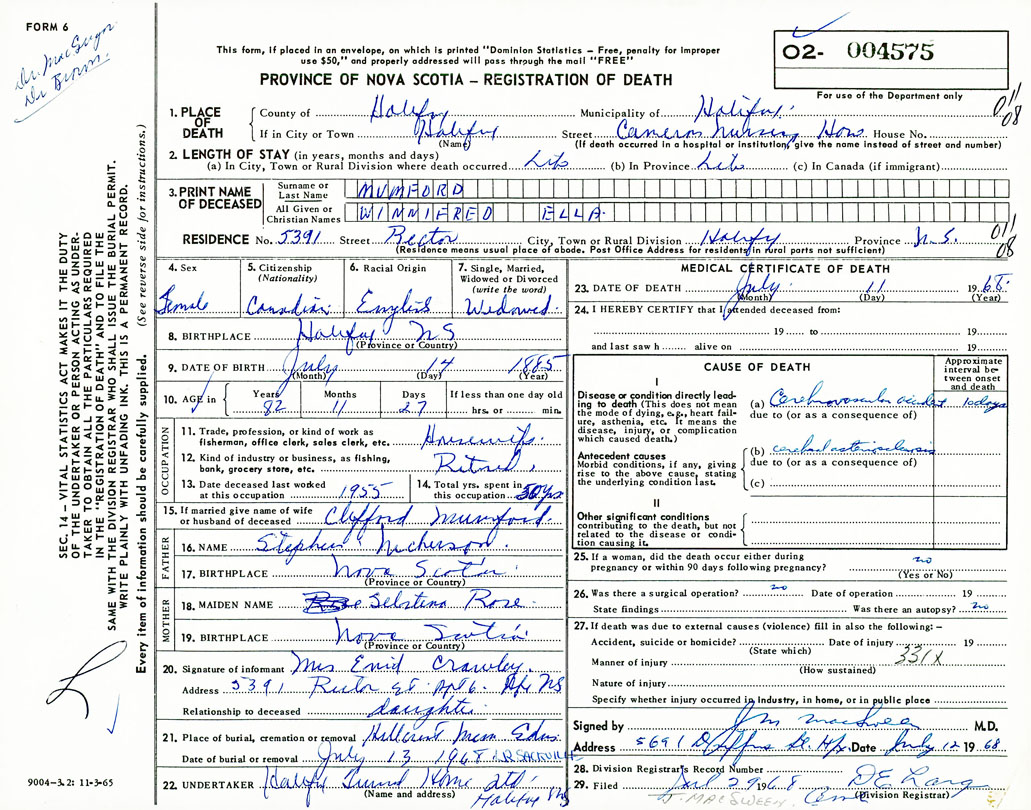 FORM 6
Dr. MacGregor
Dr Brown.
O2- 004575
For use of the Department only
This form, if placed in an envelope, on which is printed "Dominion Statistics – Free, penalty for improper
use $50," and properly addressed will pass through the mail "FREE"
PROVINCE OF NOVA SCOTIA – REGISTRATION OF DEATH
011
08
1. PLACE OF DEATH County of Halifax Municipality of Halifax
If in City or Town Halifax Street Cameron Nursing Home House No.
(Name) (If death occurred in a hospital or institution, give the name instead of street and number)
2. LENGTH OF STAY (in years, months and days)
(a) In City, Town or Rural Division where death occurred Life (b) In Province Life (c) In Canada (if immigrant)
3. PRINT NAME OF DECEASED
Surname or Last Name MUMFORD
All Given or Christian Names WINNIFRED ELLA
RESIDENCE No. 5391 Street Rector City, Town or Rural Division Halifax Province N.S.
(Residence means usual place of abode. Post Office Address for residents in rural parts not sufficient)
011
08
4. Sex
Female
5. Citizenship
(Nationality)
Canadian
6. Racial Origin
English
7. Single, Married,
Widowed or Divorced
(write the word)
Widowed
8. BIRTHPLACE Halifax NS
(Province or Country)
9. DATE OF BIRTH July 14 1885
(Month) (Day) (Year)
10. AGE in Years Months Days If less than one day old
82 11 27 hrs. or min.
OCCUPATION
11. Trade, profession, or kind of work as
fisherman, office clerk, sales clerk, etc. Housewife
12. Kind of industry or business, as fishing,
bank, grocery store, etc. Retired
13. Date deceased last worked
at this occupation 1955
14. Total yrs. spent in
this occupation 50 yrs
15. If married give name of wife
or husband of deceased Clifford Mumford
FATHER
16. NAME Stephen Nickerson
17. BIRTHPLACE Nova Scotia
(Province or Country)
MOTHER
18. MAIDEN NAME Selstina Rose
19. BIRTHPLACE Nova Scotia
(Province or Country)
20. Signature of informant Mrs Enid Crawley
Address 5391 Rector St. Apt 6. Hfx NS
Relationship to deceased daughter
21. Place of burial, cremation or removal Hillcrest Mem Gdns
Date of burial or removal July 13 1968 LR. SACKVILLE
22. UNDERTAKER Halifax Funeral Home Ltd
(Name and address) Halifax NS
MEDICAL CERTIFICATE OF DEATH
23. DATE OF DEATH July 11 1968
(Month) (Day) (Year)
24. I HEREBY CERTIFY that I attended deceased from:
19 to 19
and last saw h alive on 19
CAUSE OF DEATH
Approximate
interval be-
tween onset
and death
I
Disease or condition directly lead-
ing to death (This does not mean
the mode of dying, e.g., heart fail-
ure, asthenia, etc. It means the
disease, injury, or complication
which caused death.)
(a) Cerebrovascular accident 10 days
due to (or as a consequence of)
Antecedent causes
Morbid conditions, if any, giving
rise to the above cause, stating
the underlying condition last.
(b) cerebral arteriosclerosis
due to (or as a consequence of)
(c)
II
Other significant conditions
contributing to the death, but not
related to the disease or condi-
tion causing it.
25. If a woman, did the death occur either during
pregnancy or within 90 days following pregnancy? no
(Yes or No)
26. Was there a surgical operation? no Date of operation 19
State findings Was there an autopsy? no
27. If death was due to external causes (violence) fill in also the following:–
Accident, suicide or homicide? Date of injury 19
(State which) 331X
Manner of injury
(How sustained)
Nature of injury
Specify whether injury occurred in industry, in home, or in public place
Signed by J M MacSween M.D.
Address 5691 Duffus St. Hfx Date July 12 1968
28. Division Registrar's Record Number
29. Filed 1968 D E Lang
J. MACSWEEN (Division Registrar)
SEC. 14 – VITAL STATISTICS ACT MAKES IT THE DUTY
OF THE UNDERTAKER OR PERSON ACTING AS UNDER-
TAKER TO OBTAIN ALL THE PARTICULARS REQUIRED
IN THE "REGISTRATION OF DEATH" AND TO FILE THE
SAME WITH THE DIVISION REGISTRAR WHO SHALL ISSUE THE BURIAL PERMIT.
WRITE PLAINLY WITH UNFADING INK. THIS IS A PERMANENT RECORD.
Every item of information should be carefully supplied. (See reverse side for instructions.)
9004-3.2: 11-3-65